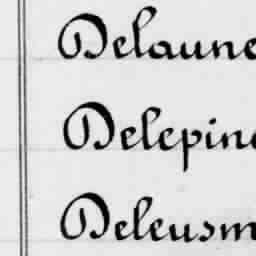 Delaune
Delepine
Deleusm